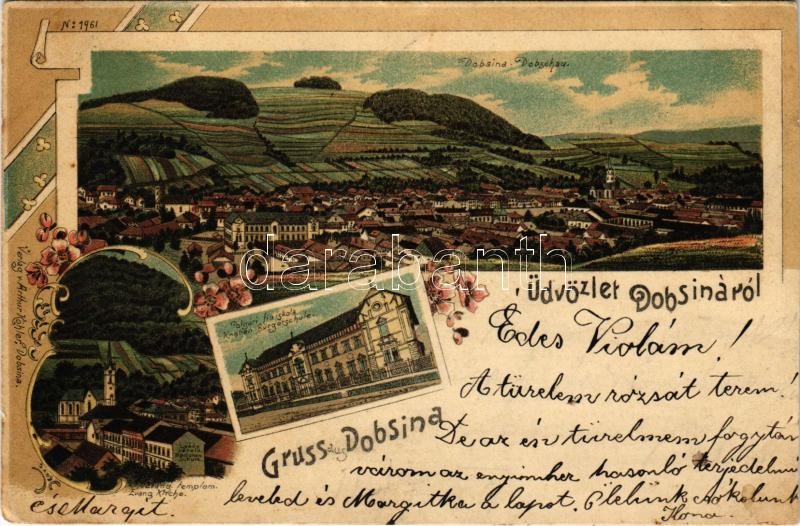 No: 1961
Dobsina - Dobschau.
darabanth.com
Verlag v. Arthur Köhler, Dobsina.
Polgári fiúiskola
Knaben Bürgerschule.
templom.
Evang. Kirche.
Üdvözlet Dobsináról
Gruss aus Dobsina
Édes Violám!
A türelem rózsát terem!
De az én türelmem fogytán
várom az enyimhez hasonló terjedelmű
leveled és Margitka a lapot. Ölelünk csókolunk
Ilona
és Margit.